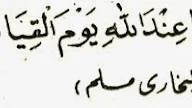 عِنْدَ اللهِ يَوْمَ الْقِيَا
بخاری مسلم،